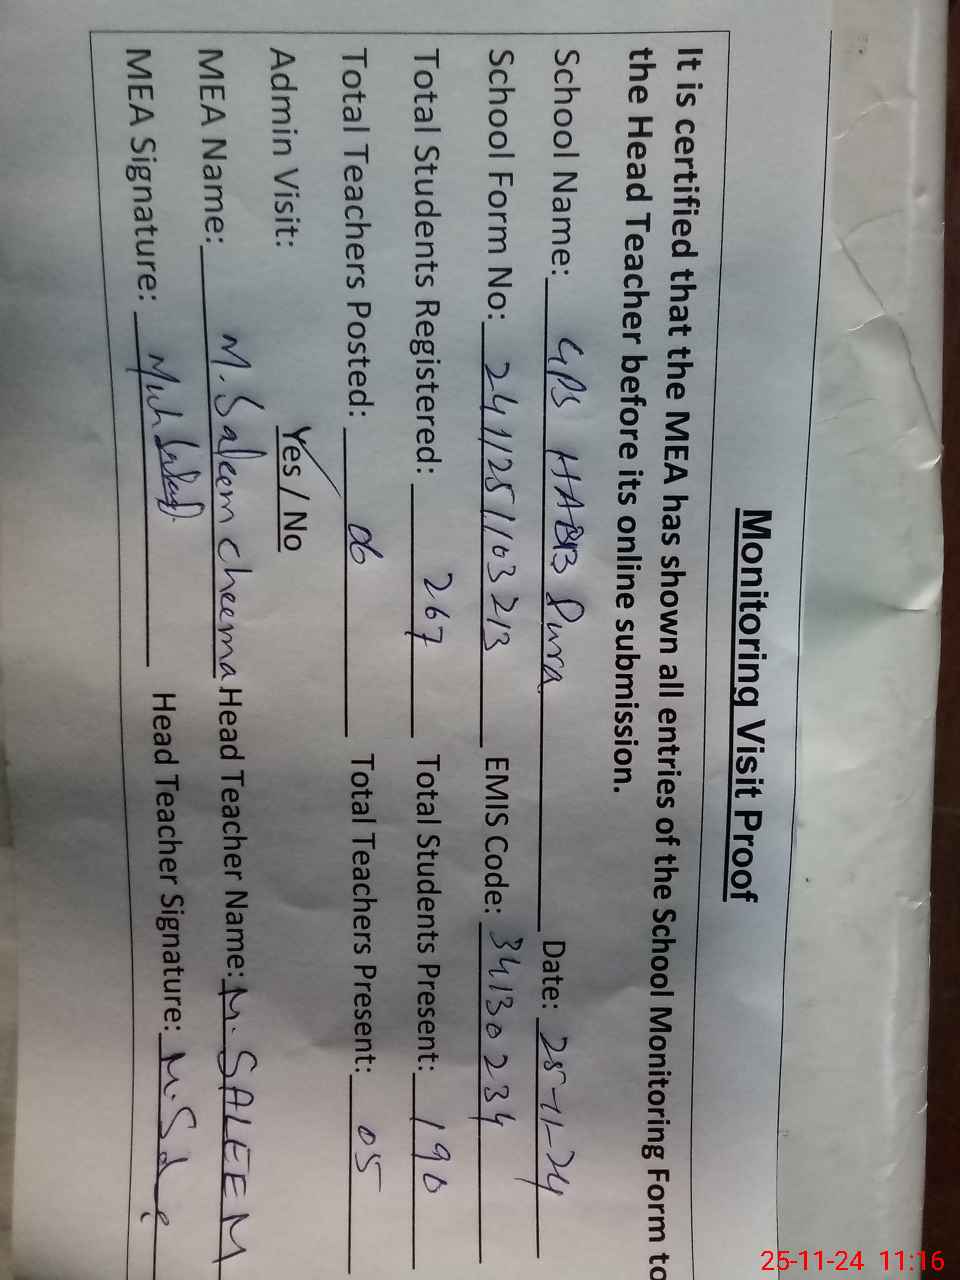 Monitoring Visit Proof
It is certified that the MEA has shown all entries of the School Monitoring Form to
the Head Teacher before its online submission.
School Name: GPS HABIB Pura Date: 25-11-24
School Form No: 2411251103213 EMIS Code: 34130234
Total Students Registered: 267 Total Students Present: 190
Total Teachers Posted: 06 Total Teachers Present: 05
Admin Visit: Yes / No
MEA Name: M. Saleem Cheema Head Teacher Name: M. SALEEM
MEA Signature: Muh Head Teacher Signature: M.S
25-11-24 11:16